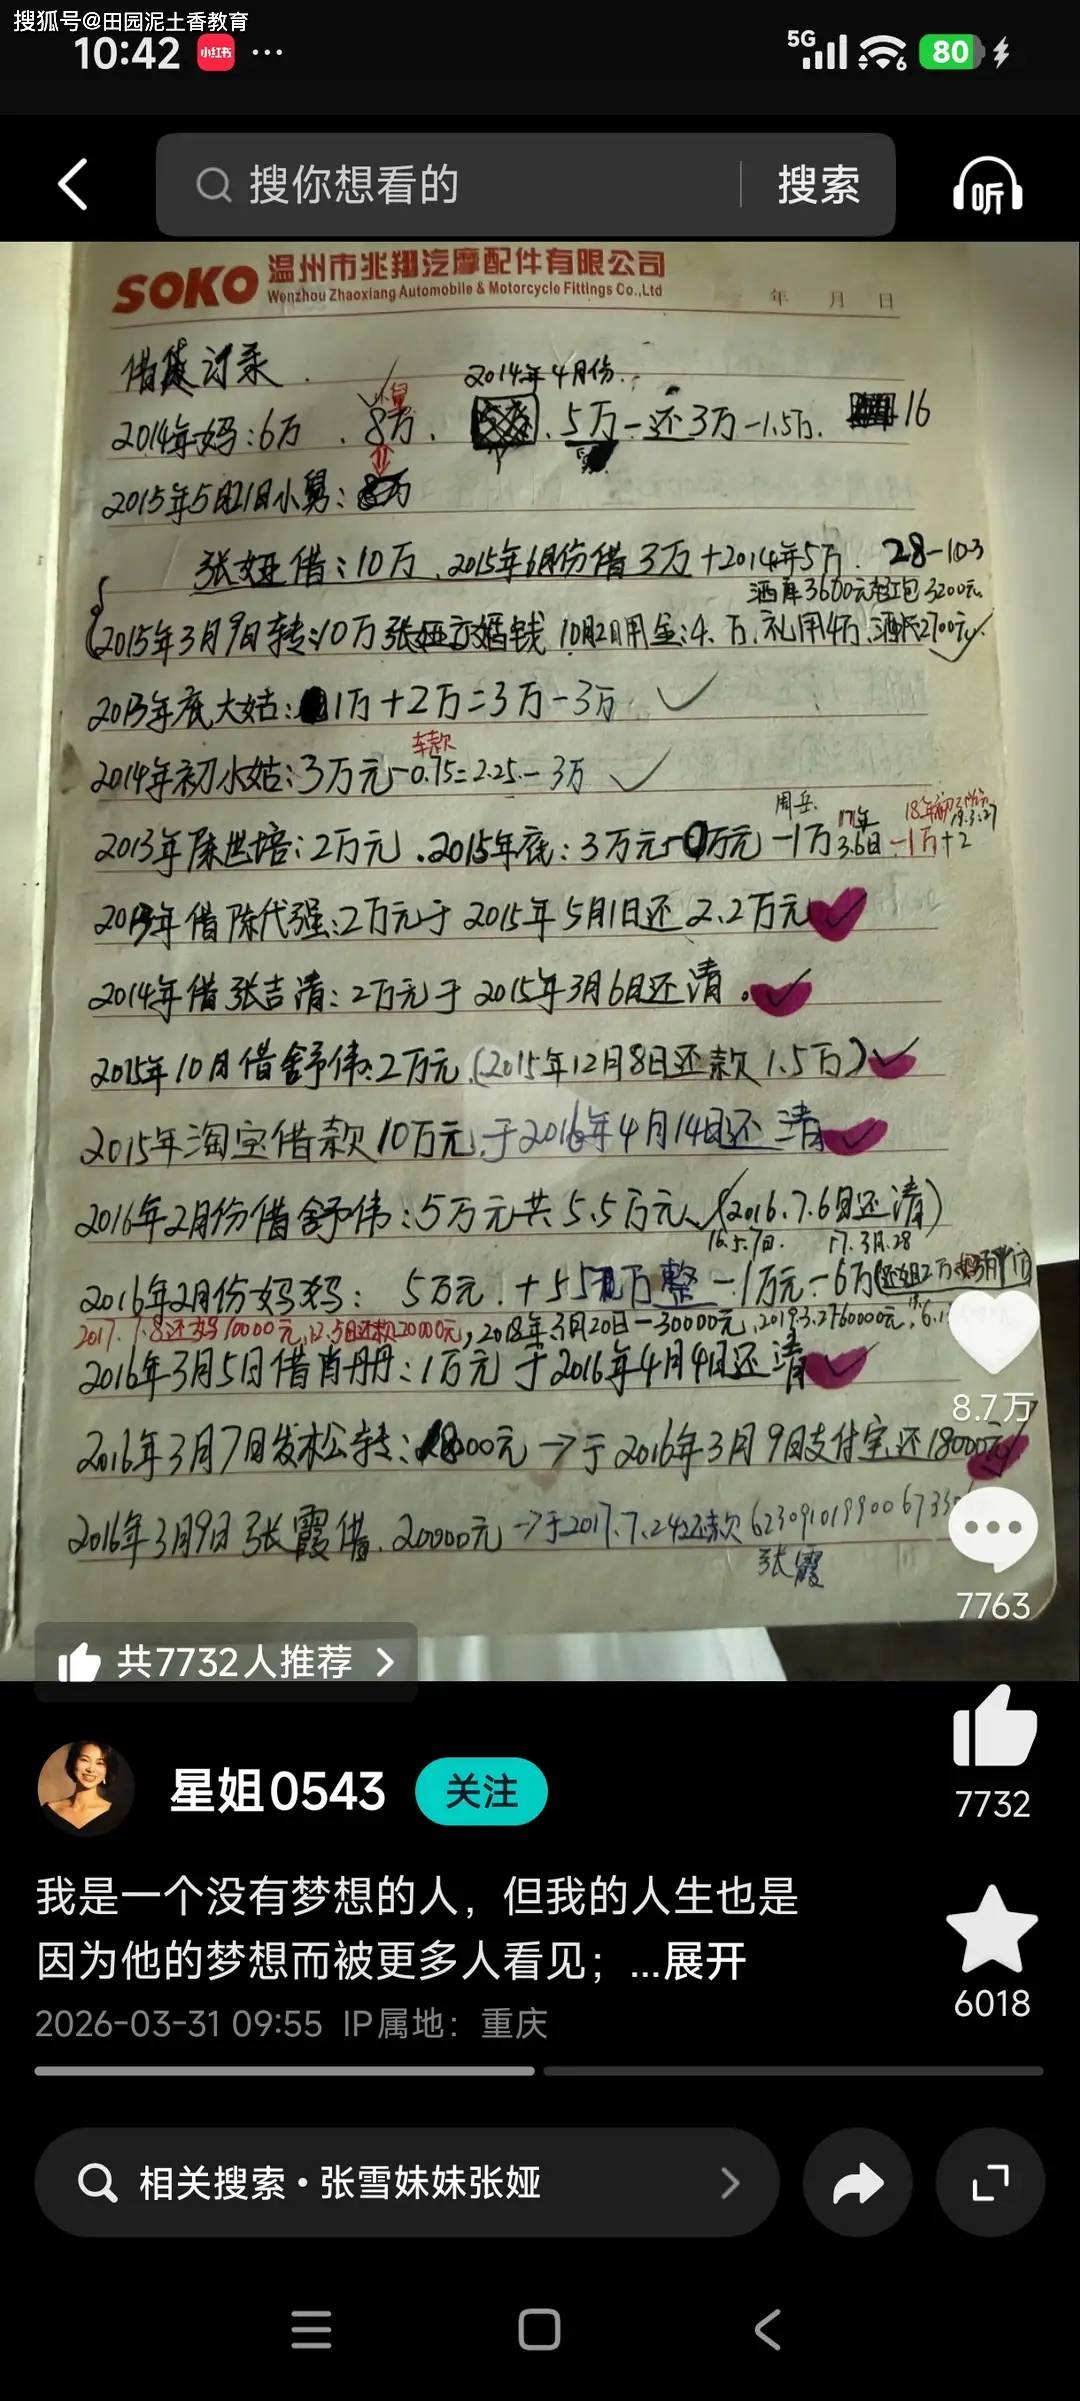 搜狐号@田园泥土香教育
10:42 小红书 ··· 5G 6 80
搜你想看的 搜索 听
SOKO 温州市兆翔汽摩配件有限公司
Wenzhou Zhaoxiang Automobile & Motorcycle Fittings Co.,Ltd
年 月 日
借贷记录.
2014年4月份.
2014年妈:6万、8万、5万-还3万-1.5万. 16
2015年5月21日小舅:
张娅借:10万、2015年6月份借3万+2014年5万. 28-10.3
2015年3月9日转:10万张娅交婚钱 10月2日用金:4.万、礼用4万、酒
2013年底大姑:1万+2万=3万-3万 ✓
车款
2014年初小姑:3万元-0.75=2.25-3万 ✓
2013年陈世培:2万元、2015年底:3万元 万元-1万 17年 3.6日 -1万+2
借陈代强:2万元于2015年5月1日还2.2万元 ✓
2014年借张吉清:2万元于2015年3月6日还清. ✓
2015年10月借舒伟:2万元(2015年12月8日还款1.5万) ✓
2015年淘宝借款10万元于2016年4月14日还清 ✓
2016年2月份借舒伟:5万元共5.5万元、(2016.7.6日还清)
17.3月.28
2016年2月份妈妈: 5万元.+ 万整-1万元-6万
2017.7.8还妈10000元,12.5日还款20000元,2018年3月20日-30000元,
2016年3月5日借肖丹丹:1万元于2016年4月4日还清 ✓
2016年3月7日发松转: →于2016年3月9日支付宝还18000元
2016年3月9日张霞借、20000元→于2017.7.24还款
张霞
8.7万
7763
共7732人推荐 >
7732
星姐0543 关注
我是一个没有梦想的人，但我的人生也是
因为他的梦想而被更多人看见；...展开
6018
2026-03-31 09:55 IP属地：重庆
相关搜索·张雪妹妹张娅